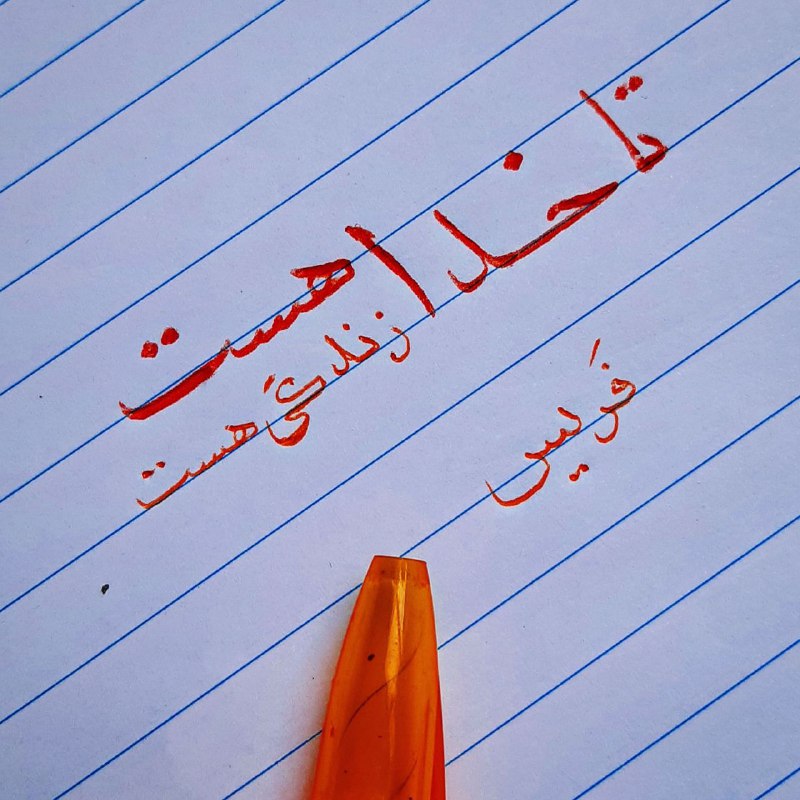 تا خدا هست
زندگی هست
فَریس